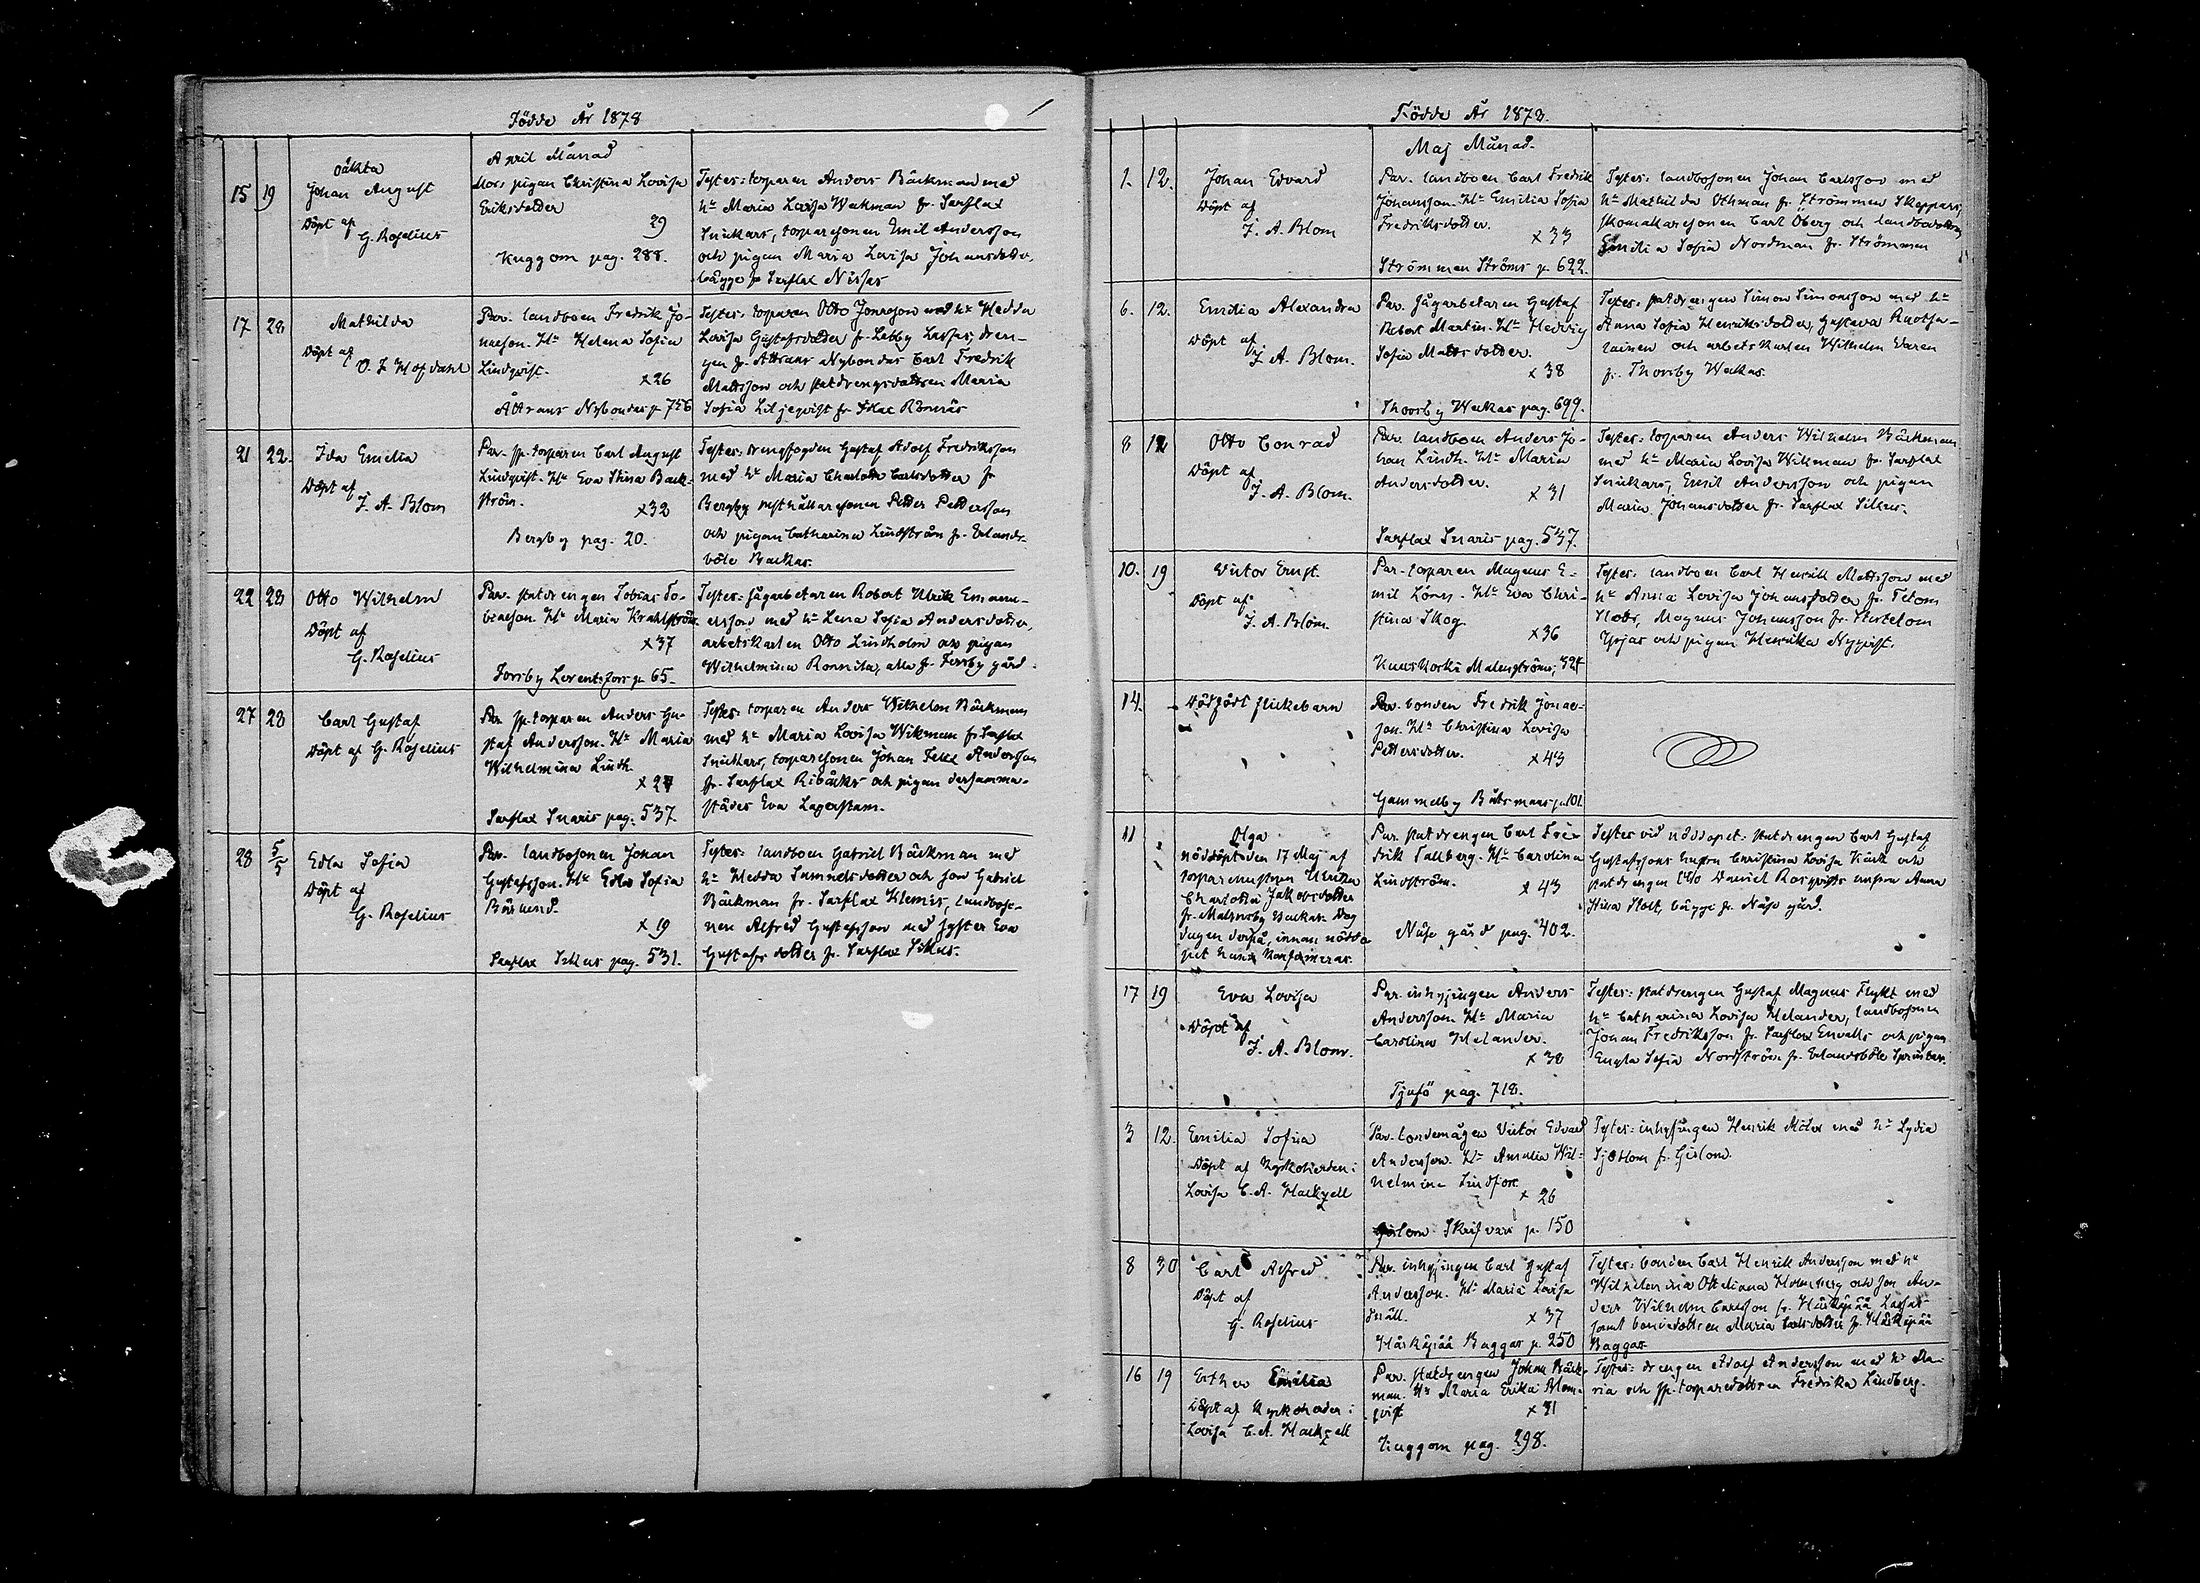 Födde År 1878
April Månad
15 19
oäkta
Johan August
Döpt af
G. Roselius
Mor: pigan Christina Lovisa
Eriksdotter
29
Kuggom pag. 288.
Testes: torparen Anders Bäckman med
hn Maria Lovisa Wekman fr. Sarflax
Snickars, torparesonen Emil Andersson
och pigan Maria Lovisa Johansdotter,
bägge fr Sarflax Nissas
17 28
Mathilda
Döpt af
O. I. Hofdahl
Par. landboen Fredrik Jo-
naeson. Hn Helena Sofia
Lindqvist.
x 26
Attrans Nybondas p. 756
Testes: torparen Otto Jonasson med hn Hedda
Lovisa Gustafsdotter fr. Labby Lassas, dren-
gen fr. Attrans Nybondas Carl Fredrik
Mattsson och statdrengsdottren Maria
Sofia Liljeqvist fr Rönnäs
21 22.
Ida Emelia
Döpt af
J. A. Blom
Par. sp. torparen Carl August
Lindqvist. Hn Eva Stina Back-
ström.
x 32
Bergby pag. 20.
Testes: drengfogden Gustaf Adolf Fredriksson
med hn Maria Charlotta Carlsdotter fr
Bergby resthållaresonen Petter Pettersson
och pigan Catharina Lindström fr. Erlands-
böle Backas.
22 28
Otto Wilhelm
Döpt af
G. Roselius
Par. statdrengen Tobias To-
biaeson. Hn Maria Krahlström
x 37
Forsby Lorentzfors p. 65.
Testes: sågarbetaren Robert Ulrik Emanu-
elsson med hn Lena Sofia Andersdotter,
arbetskarlen Otto Lindholm och pigan
Wilhelmina Ronnila, alla fr. Forsby gård.
27 28
Carl Gustaf
Döpt af G. Roselius
Par. sp. torparen Anders Gu-
staf Andersson. Hn Maria
Wilhelmina Lindh.
x 27
Sarflax Snaris pag. 537
Testes: torparen Anders Wilhelm Bäckman
med hn Maria Lovisa Wikman fr Sarflax
Snickars, torparesonen Johan Felix Andersson
fr. Sarflax Ribäcks och pigan dersamma-
städes Eva Lagerstam.
28 5/5
Edla Sofia
Döpt af
G. Roselius
Par. landbosonen Johan
Gustafsson. Hn Edla Sofia
Bärlund.
x 19
Sarflax Sikus pag. 531.
Testes: landboen Gabriel Bäckman med
hn Hedda Samuelsdotter och son Gabriel
Bäckman fr. Sarflax Klemis, landboso-
nen Alfred Gustafsson med syster Eva
Gustafsdotter fr. Sarflax Sikus.
Födde År 1878.
Maj Månad.
1. 12.
Johan Edvard
Döpt af
J. A. Blom
Par. landboen Carl Fredrik
Johansson. Hn Emilia Sofia
Fredriksdotter.
x 33
Strömman Ströms p. 622.
Testes: landbosonen Johan Carlsson med
hn Mathilda Othman fr. Strömman Skeppars,
skomakaresonen Carl Öberg och landbodottren
Emilia Sofia Nordman fr. Strömman
6. 12.
Emilia Alexandra
Döpt af
J. A. Blom.
Par. sågarbetaren Gustaf
Robert Martin. Hn Hedvig
Sofia Mattsdotter.
x 38
Thorsby Weckas pag. 699.
Testes: statdrengen Simon Simonsson med hn
Anna Sofia Henriksdotter, Gustava Ruotsa-
lainen och arbetskarlen Wilhelm Waren
fr. Thorsby Weckas.
8 12
Otto Conrad
Döpt af
J. A. Blom.
Par. landboen Anders Jo-
han Lindh. Hn Maria
Andersdotter.
x 31
Sarflax Snaris pag. 537.
Testes: torparen Anders Wilhelm Bäckman
med hn Maria Lovisa Wikman fr. Sarflax
Snickars, Emil Andersson och pigan
Maria Johansdotter fr. Sarflax Sikus.
10. 19
Victor Ernst.
Döpt af
J. A. Blom.
Par. torparen Magnus E-
mil Lönn. Hn Eva Chri-
stina Skog.
x 36
Kuuskoski Malmströms,
Testes: landboen Carl Henrik Mattsson med
hn Anna Lovisa Johansdotter fr. Tetom
Magnus Johansson fr.
och pigan Henrika Nyqvist.
14.
Dödfödt flickebarn
Par. bonden Fredrik Jonae-
son. Hn Christina Lovisa
Pettersdotter.
x 43
Gammelby Båtsmans p. 101
11
Olga
nöddöpt den 17 Maj af
torparehustrun Ulrika
Charlotta Jakobsdotter
fr. Malmsby Backas. Dog
dagen derpå, innan nöddo-
pet hann konfirmeras.
Par. statdrengen Carl Fre-
drik Tallberg. Hn Carolina
Lindström.
x 43
Näse gård pag. 402.
Testes vid nöddopet: statdrengen Carl Gustaf
Gustafssons hustru Christina Lovisa och
statdrengen Otto Daniel Rosqvists hustru Anna
Stina Holt, bägge fr. Näse gård.
17 19
Eva Lovisa
Döpt af
J. A. Blom.
Par. inhysingen Anders
Andersson. Hn Maria
Carolina Helander.
x 38
Tjusö pag. 718.
Testes: statdrengen Gustaf Magnus Flykt med
hn Catharina Lovisa Helander, landbosonen
Johan Fredriksson fr. Sarflax Envalls och pigan
Engla Sofia Nordström fr. Erlandsböle
3 12.
Emilia Sofia
Döpt af Kyrkoherden i
Lovisa C. A. Hackzell
Par. bondemågen Victor Edvard
Andersson. Hn Amalia Wil-
helmina Lindfors
x 26
Gislom Skrifvars p. 150
Testes: inhysingen Henrik Malm med hn Lydia
Sjöblom fr. Gislom.
8 30
Carl Alfred
Döpt af
G. Roselius
Par. inhysingen Carl Gustaf
Andersson. Hn Maria Lovisa
Snäll.
x 37
Härkäpää Baggas p. 250
Testes: bonden Carl Henrik Andersson med hn
Wilhelmina Ottiliana Holmberg och son An-
ders Wilhelm Carlsson fr. Härkäpää Lassas
samt bondedottren Maria Carlsdotter fr. Härkäpää
Baggas
16 19
Esther Emilia
Döpt af Kyrkoherden i
Lovisa C. A. Hackzell
Par. statdrengen Johan Bäck-
man. Hn Maria Erika Blom-
qvist
x 31
Kuggom pag. 298.
Testes: drengen Adolf Andersson med hn Ma-
ria och sp. torparedottren Fredrika Lindberg.